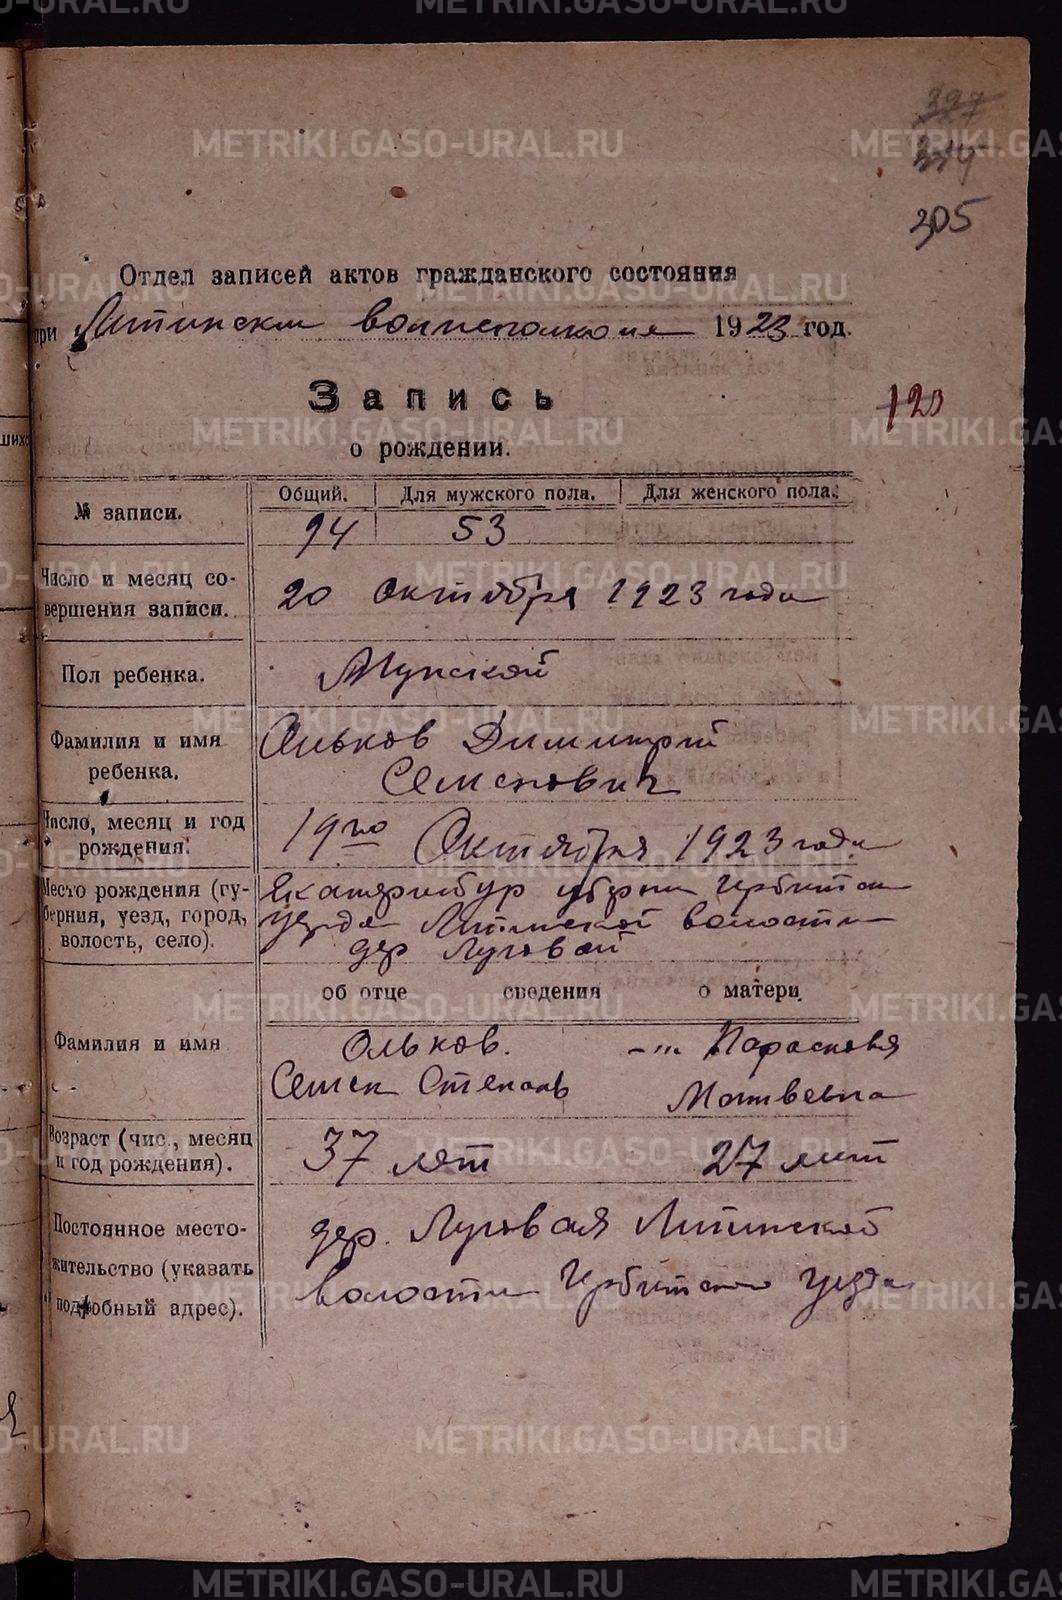 METRIKI.GASO-URAL.RU
327
314
305
Отдел записей актов гражданского состояния
при Ляпинском волисполкоме 1923 год.
Запись
120
о рождении.
№ записи.
Общий. Для мужского пола. Для женского пола.
94 53
Число и месяц со-
вершения записи.
20 октября 1923 года
Пол ребенка.
Мужской
Фамилия и имя
ребенка.
Ольков Димитрий
Семенович
Число, месяц и год
рождения.
19го Октября 1923 года
Место рождения (гу-
берния, уезд, город,
волость, село).
Екатеринбур губернии Ирбитск
уезда волости
дер Луговой
об отце сведения о матери
Фамилия и имя
Ольков. -"- Парасковья
Семен Степанов Матвевна
Возраст (чис., месяц
и год рождения).
37 лят 27 лит
Постоянное место-
жительство (указать
подробный адрес).
дер. Луговая
волости Ирбитского уезда